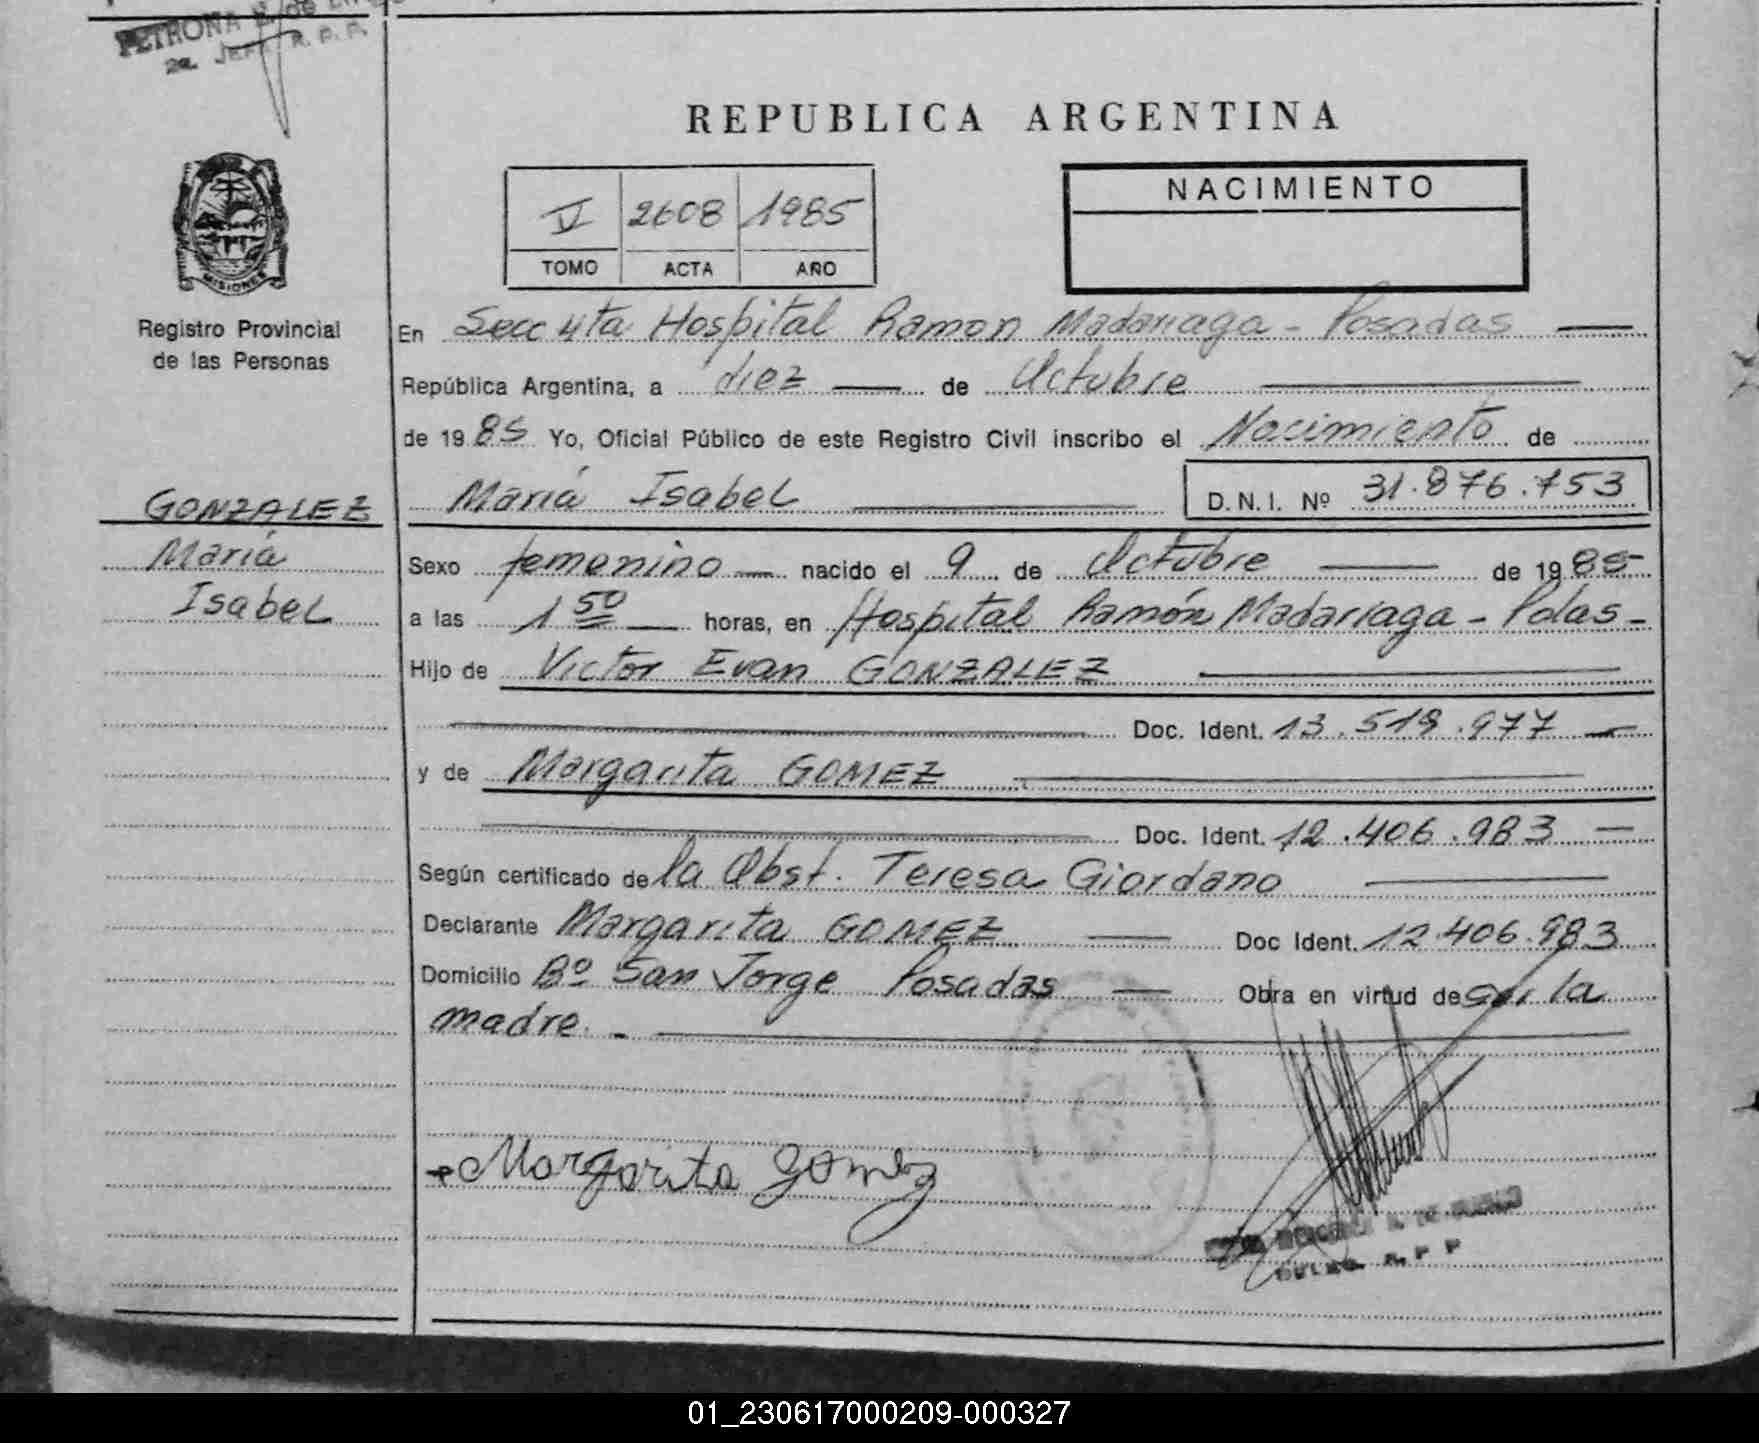 PETRONA
2a. JEFA R. P. P.
REPUBLICA ARGENTINA
V 2608 1985
TOMO ACTA AÑO
NACIMIENTO
MISIONES
Registro Provincial
de las Personas
En Secc 4ta Hospital Ramon Madariaga - Posadas
República Argentina, a diez de Octubre
de 1985 Yo, Oficial Público de este Registro Civil inscribo el Nacimiento de
Maria Isabel D.N.I. Nº 31.876.753
GONZALEZ
Maria
Isabel
Sexo femenino nacido el 9 de Octubre de 1985
a las 1 50 horas, en Hospital Ramón Madariaga - Pdas -
Hijo de Victor Evan GONZALEZ
Doc. Ident. 13.519.977
y de Margarita GOMEZ
Doc. Ident. 12.406.983
Según certificado de la Obst. Teresa Giordano
Declarante Margarita GOMEZ Doc Ident. 12.406.983
Domicilio Bº San Jorge Posadas Obra en virtud de ser la
madre. -
Margarita Gomez
R. P. P.
01_230617000209-000327